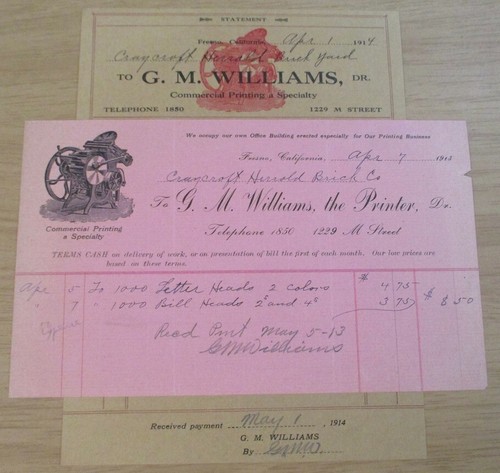 STATEMENT
Fresno, California, Apr 1 1914
Craycroft Herrold Brick Yard
TO G. M. WILLIAMS, DR.
Commercial Printing a Specialty
TELEPHONE 1850 1229 M STREET
We occupy our own Office Building erected especially for Our Printing Business
Fresno, California, Apr 7 1913
Craycroft Herrold Brick Co
To G. M. Williams, the Printer, Dr.
Telephone 1850 1229 M Street
Commercial Printing
a Specialty
TERMS CASH on delivery of work, or on presentation of bill the first of each month. Our low prices are
based on these terms.
Apr 5 To 1000 Letter Heads 2 colors $ 4 75
" 7 " 1000 Bill Heads 2s and 4s 3 75 $ 8 50
Expense
Recd Pmt May 5-13
GMWilliams
Received payment May 1, 1914
G. M. WILLIAMS
By GMW